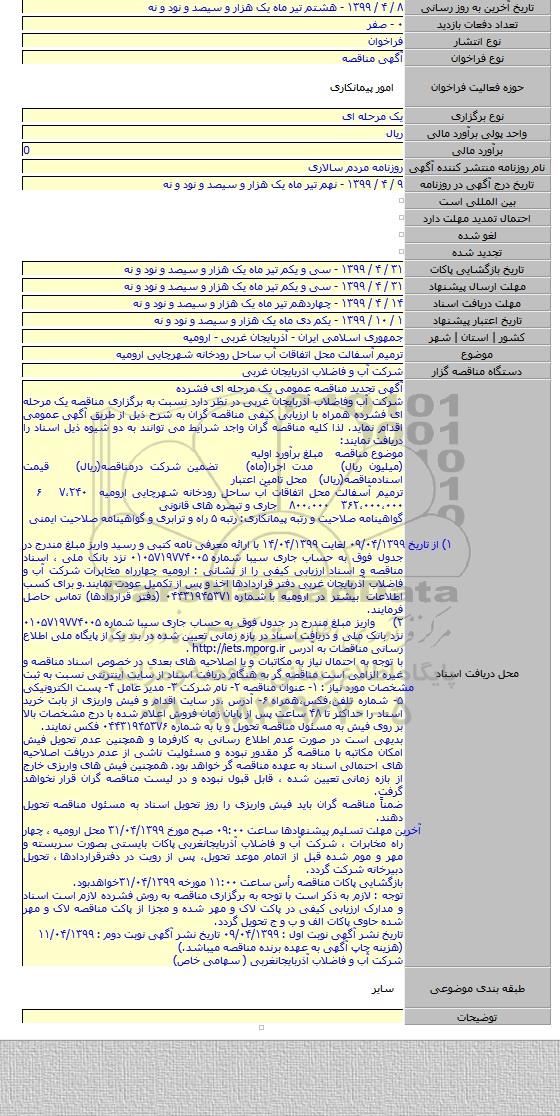 تاریخ آخرین به روز رسانی ۸ / ۴ / ۱۳۹۹ - هشتم تیر ماه یک هزار و سیصد و نود و نه
تعداد دفعات بازدید ۰ - صفر
نوع انتشار فراخوان
نوع فراخوان آگهی مناقصه
حوزه فعالیت فراخوان امور پیمانکاری
نوع برگزاری یک مرحله ای
واحد پولی برآورد مالی ریال
برآورد مالی 0
نام روزنامه منتشر کننده آگهی روزنامه مردم سالاری
تاریخ درج آگهی در روزنامه ۹ / ۴ / ۱۳۹۹ - نهم تیر ماه یک هزار و سیصد و نود و نه
بین المللی است
احتمال تمدید مهلت دارد
لغو شده
تجدید شده
تاریخ بازگشایی پاکات ۳۱ / ۴ / ۱۳۹۹ - سی و یکم تیر ماه یک هزار و سیصد و نود و نه
مهلت ارسال پیشنهاد ۳۱ / ۴ / ۱۳۹۹ - سی و یکم تیر ماه یک هزار و سیصد و نود و نه
مهلت دریافت اسناد ۱۴ / ۴ / ۱۳۹۹ - چهاردهم تیر ماه یک هزار و سیصد و نود و نه
تاریخ اعتبار پیشنهاد ۱ / ۱۰ / ۱۳۹۹ - یکم دی ماه یک هزار و سیصد و نود و نه
کشور | استان | شهر جمهوری اسلامی ایران - آذربایجان غربی - ارومیه
موضوع ترمیم آسفالت محل اتفاقات آب ساحل رودخانه شهرچایی ارومیه
دستگاه مناقصه گزار شرکت آب و فاضلاب آذربایجان غربی
محل دریافت اسناد
آگهی تجدید مناقصه عمومی یک مرحله ای فشرده
شرکت آب وفاضلاب آذربایجان غربی در نظر دارد نسبت به برگزاری مناقصه یک مرحله
ای فشرده همراه با ارزیابی کیفی مناقصه گران به شرح ذیل از طریق آگهی عمومی
اقدام نماید. لذا کلیه مناقصه گران واجد شرایط می توانند به دو شیوه ذیل اسناد را
دریافت نمایند:
موضوع مناقصه مبلغ برآورد اولیه
(میلیون ریال) مدت اجرا(ماه) تضمین شرکت درمناقصه(ریال) قیمت
اسنادمناقصه(ریال) محل تامین اعتبار
ترمیم آسفالت محل اتفاقات آب ساحل رودخانه شهرچایی ارومیه ۷،۲۴۰ ۶
۳۶۲،۰۰۰،۰۰۰ ۸۰۰،۰۰۰ جاری و تبصره های قانونی
گواهینامه صلاحیت و رتبه پیمانکاری: رتبه ۵ راه و ترابری و گواهینامه صلاحیت ایمنی
۱) از تاریخ ۰۹/۰۴/۱۳۹۹ لغایت ۱۴/۰۴/۱۳۹۹ با ارائه معرفی نامه کتبی و رسید واریز مبلغ مندرج در
جدول فوق به حساب جاری سیبا شماره ۰۱۰۵۷۱۹۷۷۴۰۰۵ نزد بانک ملی ، اسناد
مناقصه و اسناد ارزیابی کیفی را از نشانی : ارومیه چهارراه مخابرات شرکت آب و
فاضلاب آذربایجان غربی دفتر قراردادها اخذ و پس از تکمیل عودت نمایند.و برای کسب
اطلاعات بیشتر در ارومیه با شماره ۰۴۴۳۱۹۴۵۳۷۱ (دفتر قراردادها) تماس حاصل
فرمایند.
۲) واریز مبلغ مندرج در جدول فوق به حساب جاری سیبا شماره ۰۱۰۵۷۱۹۷۷۴۰۰۵
نزد بانک ملی و دریافت اسناد در بازه زمانی تعیین شده در بند یک از پایگاه ملی اطلاع
رسانی مناقصات به آدرس http://iets.mporg.ir .
با توجه به احتمال نیاز به مکاتبات و یا اصلاحیه های بعدی در خصوص اسناد مناقصه و
غیره الزامی است مناقصه گر به هنگام دریافت اسناد از سایت اینترنتی نسبت به ثبت
مشخصات مورد نیاز : ۱- عنوان مناقصه ۲- نام شرکت ۳- مدیر عامل ۴- پست الکترونیکی
۵- شماره تلفن،فکس،همراه ۶- آدرس ،در سایت اقدام و فیش واریزی از بابت خرید
اسناد را حداکثر تا ۴۸ ساعت پس از پایان زمان فروش اعلام شده با درج مشخصات بالا
بر روی فیش به مسئول مناقصه تحویل و یا به شماره ۰۴۴۳۱۹۴۵۳۷۶ فکس نمایند.
بدیهی است در صورت عدم اطلاع رسانی به کارفرما و همچنین عدم تحویل فیش
امکان مکاتبه با مناقصه گر مقدور نبوده و مسئولیت ناشی از عدم دریافت اصلاحیه
های احتمالی اسناد به عهده مناقصه گر خواهد بود. همچنین فیش های واریزی خارج
از بازه زمانی تعیین شده ، قابل قبول نبوده و در لیست مناقصه گران قرار نخواهد
گرفت.
ضمناً مناقصه گران باید فیش واریزی را روز تحویل اسناد به مسئول مناقصه تحویل
دهند.
آخرین مهلت تسلیم پیشنهادها ساعت ۰۹:۰۰ صبح مورخ ۳۱/۰۴/۱۳۹۹ محل ارومیه ، چهار
راه مخابرات ، شرکت آب و فاضلاب آذربایجانغربی پاکات بایستی بصورت سربسته و
مهر و موم شده قبل از اتمام موعد تحویل، پس از رویت در دفترقراردادها ، تحویل
دبیرخانه شرکت گردد.
بازگشایی پاکات مناقصه رأس ساعت ۱۱:۰۰ مورخه ۳۱/۰۴/۱۳۹۹خواهدبود.
توجه : لازم به ذکر است با توجه به برگزاری مناقصه به روش فشرده لازم است اسناد
و مدارک ارزیابی کیفی در پاکت لاک و مهر شده و مجزا از پاکت مناقصه لاک و مهر
شده حاوی پاکات الف و ب و ج تحویل گردد.
تاریخ نشر آگهی نوبت اول : ۰۹/۰۴/۱۳۹۹ تاریخ نشر آگهی نوبت دوم : ۱۱/۰۴/۱۳۹۹
(هزینه چاپ آگهی به عهده برنده مناقصه میباشد.)
شرکت آب و فاضلاب آذربایجانغربی ( سهامی خاص)
طبقه بندی موضوعی سایر
توضیحات